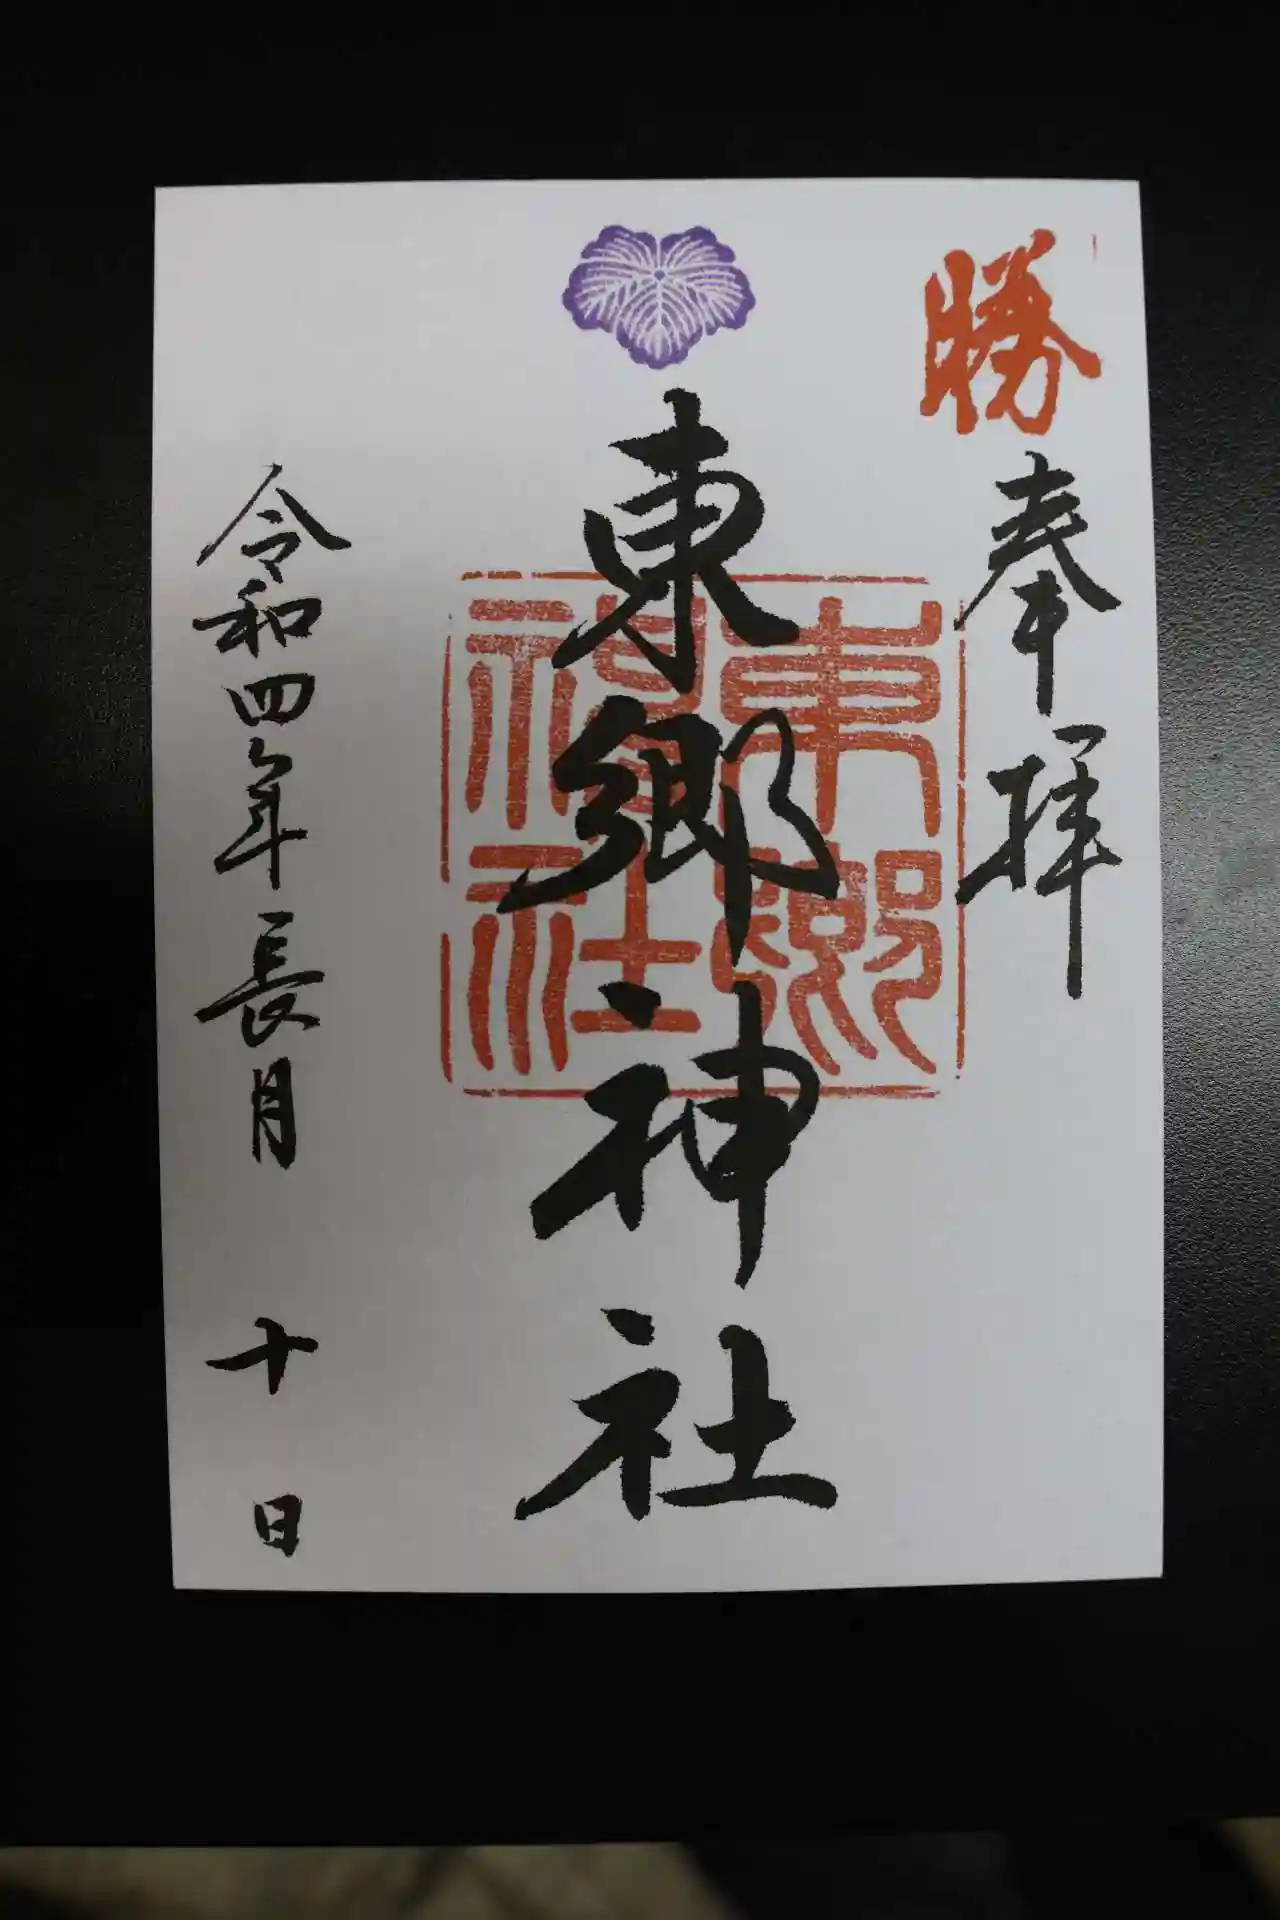 勝
奉拝
東郷神社
東郷神社
令和四年長月十日